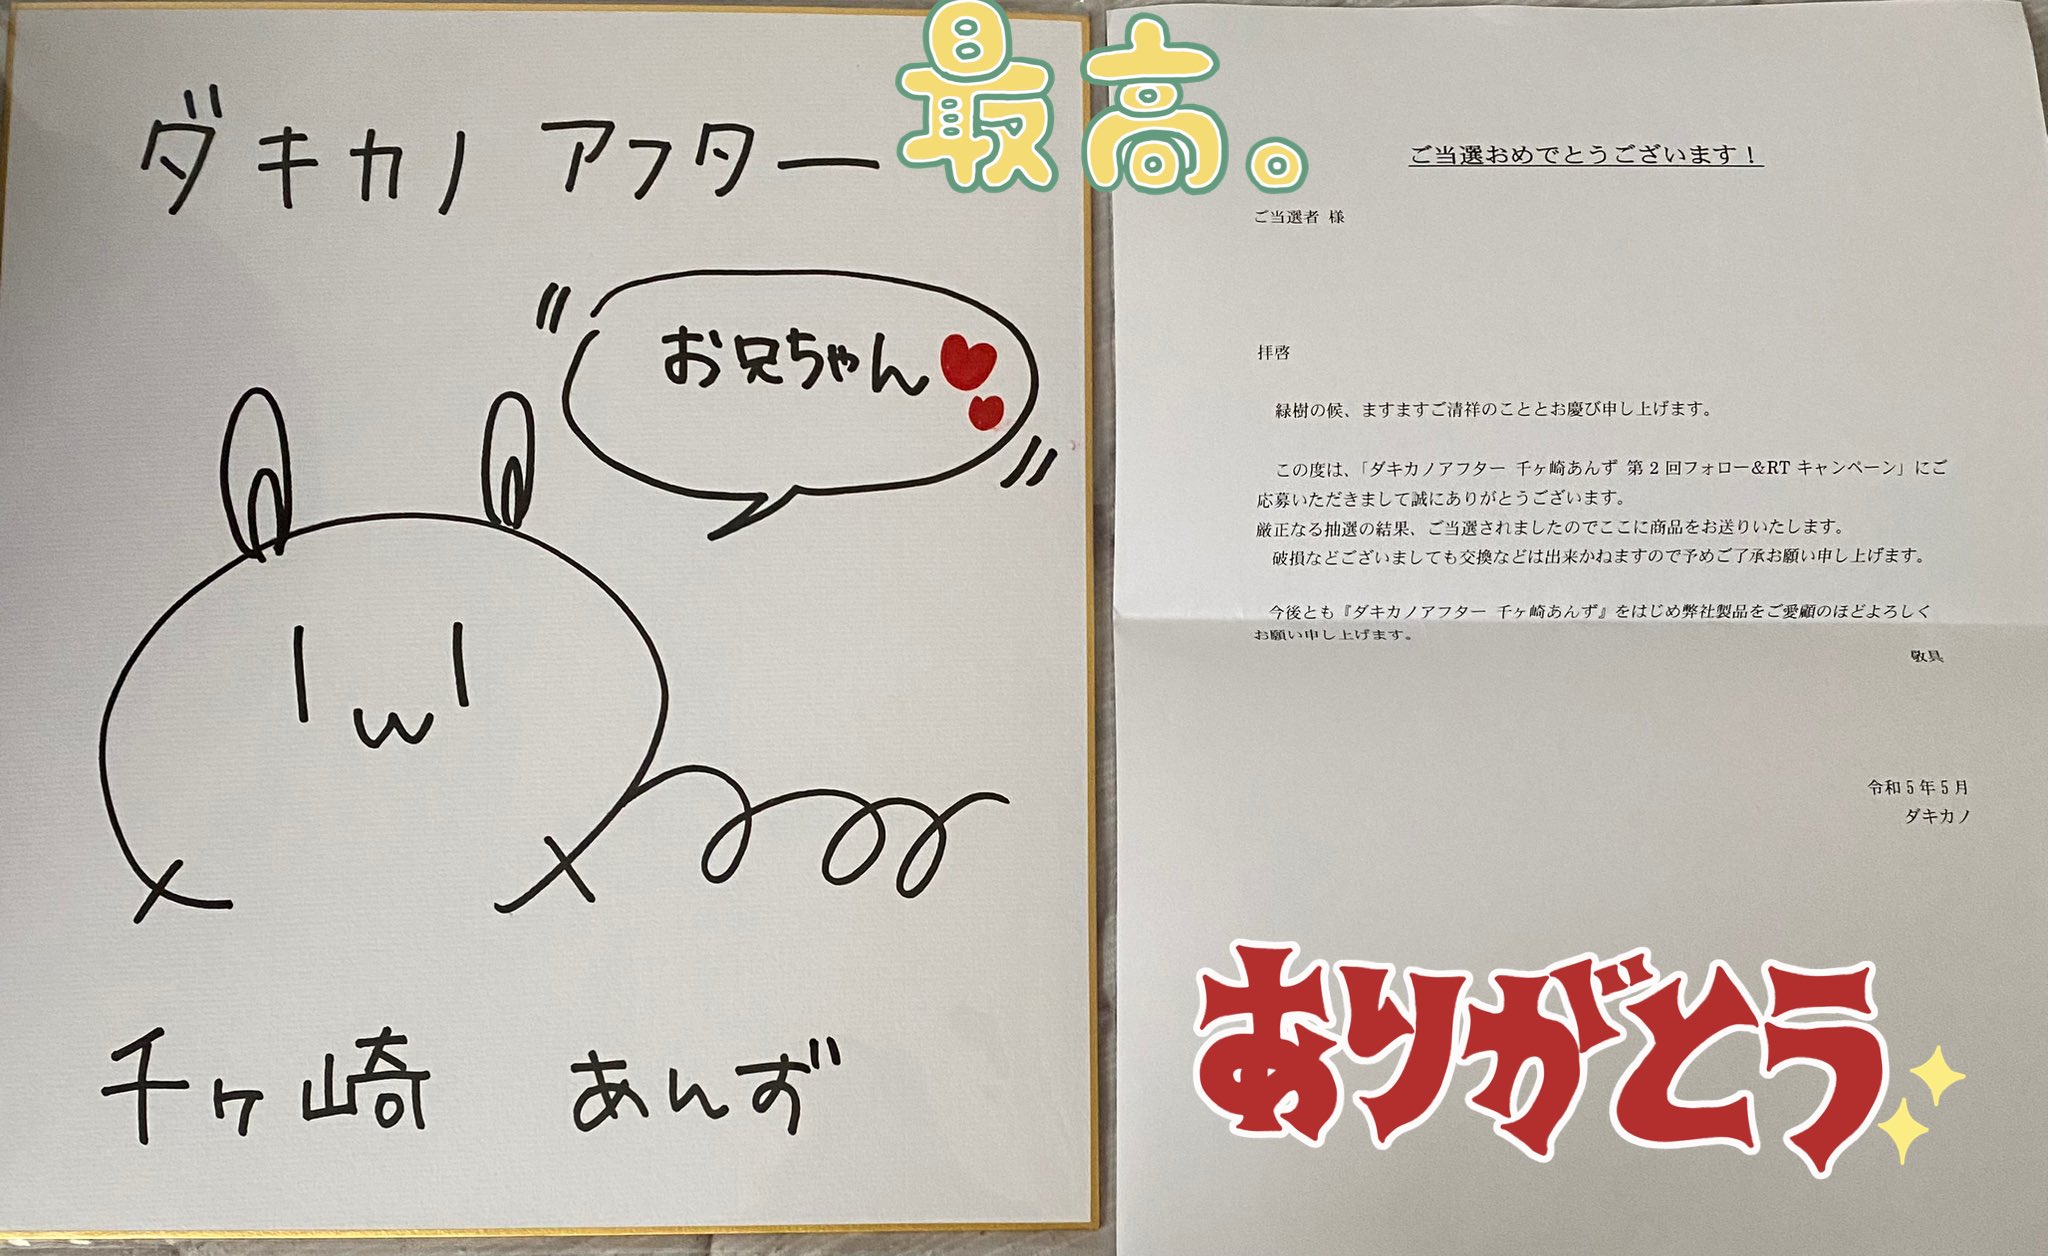 ダキカノ アフター
お兄ちゃん
千ヶ崎 あんず
最高。
ご当選おめでとうございます！
ご当選者 様
拝啓
緑樹の候、ますますご清祥のこととお慶び申し上げます。
この度は、「ダキカノアフター 千ヶ崎あんず 第2回フォロー&RTキャンペーン」にご
応募いただきまして誠にありがとうございます。
厳正なる抽選の結果、ご当選されましたのでここに商品をお送りいたします。
破損などございましても交換などは出来かねますので予めご了承お願い申し上げます。
今後とも『ダキカノアフター 千ヶ崎あんず』をはじめ弊社製品をご愛顧のほどよろしく
お願い申し上げます。
敬具
令和5年5月
ダキカノ
ありがとう